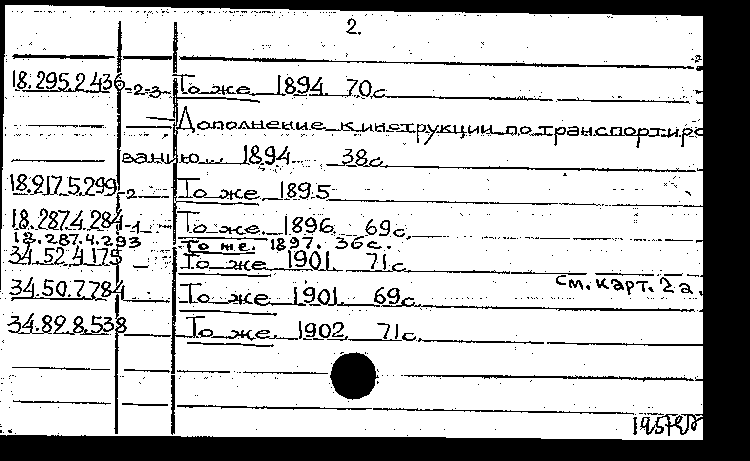 2.
18.295.2.436-2-3 То же 1894. 70с.
Дополнение к инструкции по транспортиро
ванию... 1894 38с.
18.217.5.299-2 То же 1895
18.287.4.284-1 То же. 1896. 69с.
18.287.4.293 То же. 1897. 36с.
34.52.4.175 То же 1901. 71с.
см. карт. 2а.
34.50.7.784 То же 1901. 69с.
34.89.8.538 То же. 1902. 71с.